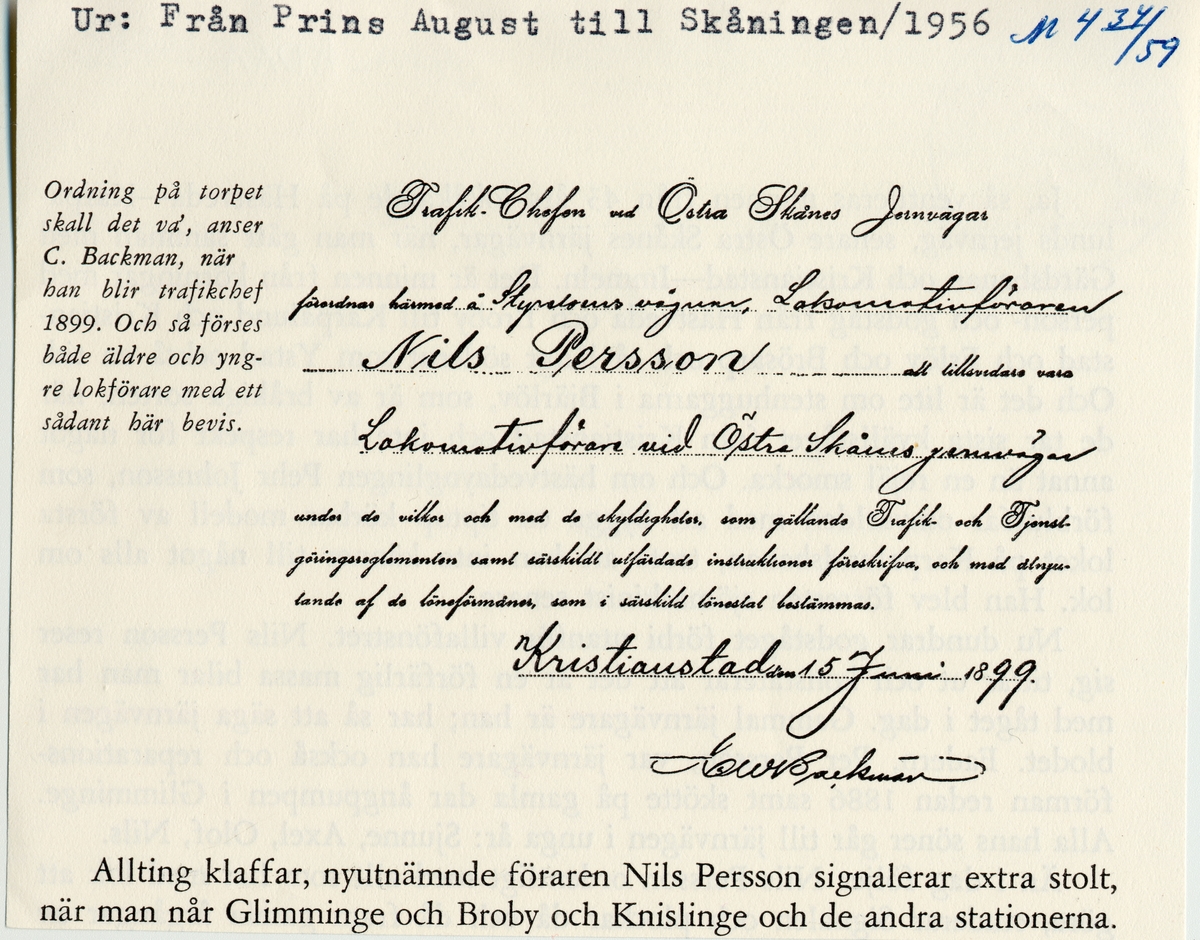 Ur: Från Prins August till Skåningen/1956 M 4 34/59
Ordning på torpet
skall det va', anser
C. Backman, när
han blir trafikchef
1899. Och så förses
både äldre och yng-
re lokförare med ett
sådant här bevis.
Trafik-Chefen vid Östra Skånes Jernvägar
förordnar härmed å Styrelsens vägnar, Lokomotivföraren
Nils Persson att tillsvidare vara
Lokomotivförare vid Östra Skånes jernvägar
under de vilkor och med de skyldigheter, som gällande Trafik- och Tjenst-
göringsreglementen samt särskildt utfärdade instruktioner föreskrifva, och med åtnju-
tande af de löneförmåner, som i särskild lönestat bestämmas.
Kristianstad den 15 Juni 1899.
C W Backman
Allting klaffar, nyutnämnde föraren Nils Persson signalerar extra stolt,
när man når Glimminge och Broby och Knislinge och de andra stationerna.